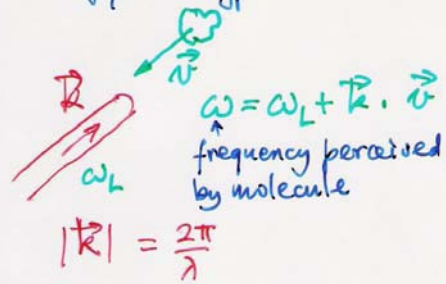 v⃗
k⃗
ω = ω_L + k⃗ . v⃗
ω_L
frequency perceived
by molecule
|k⃗| = 2π/λ